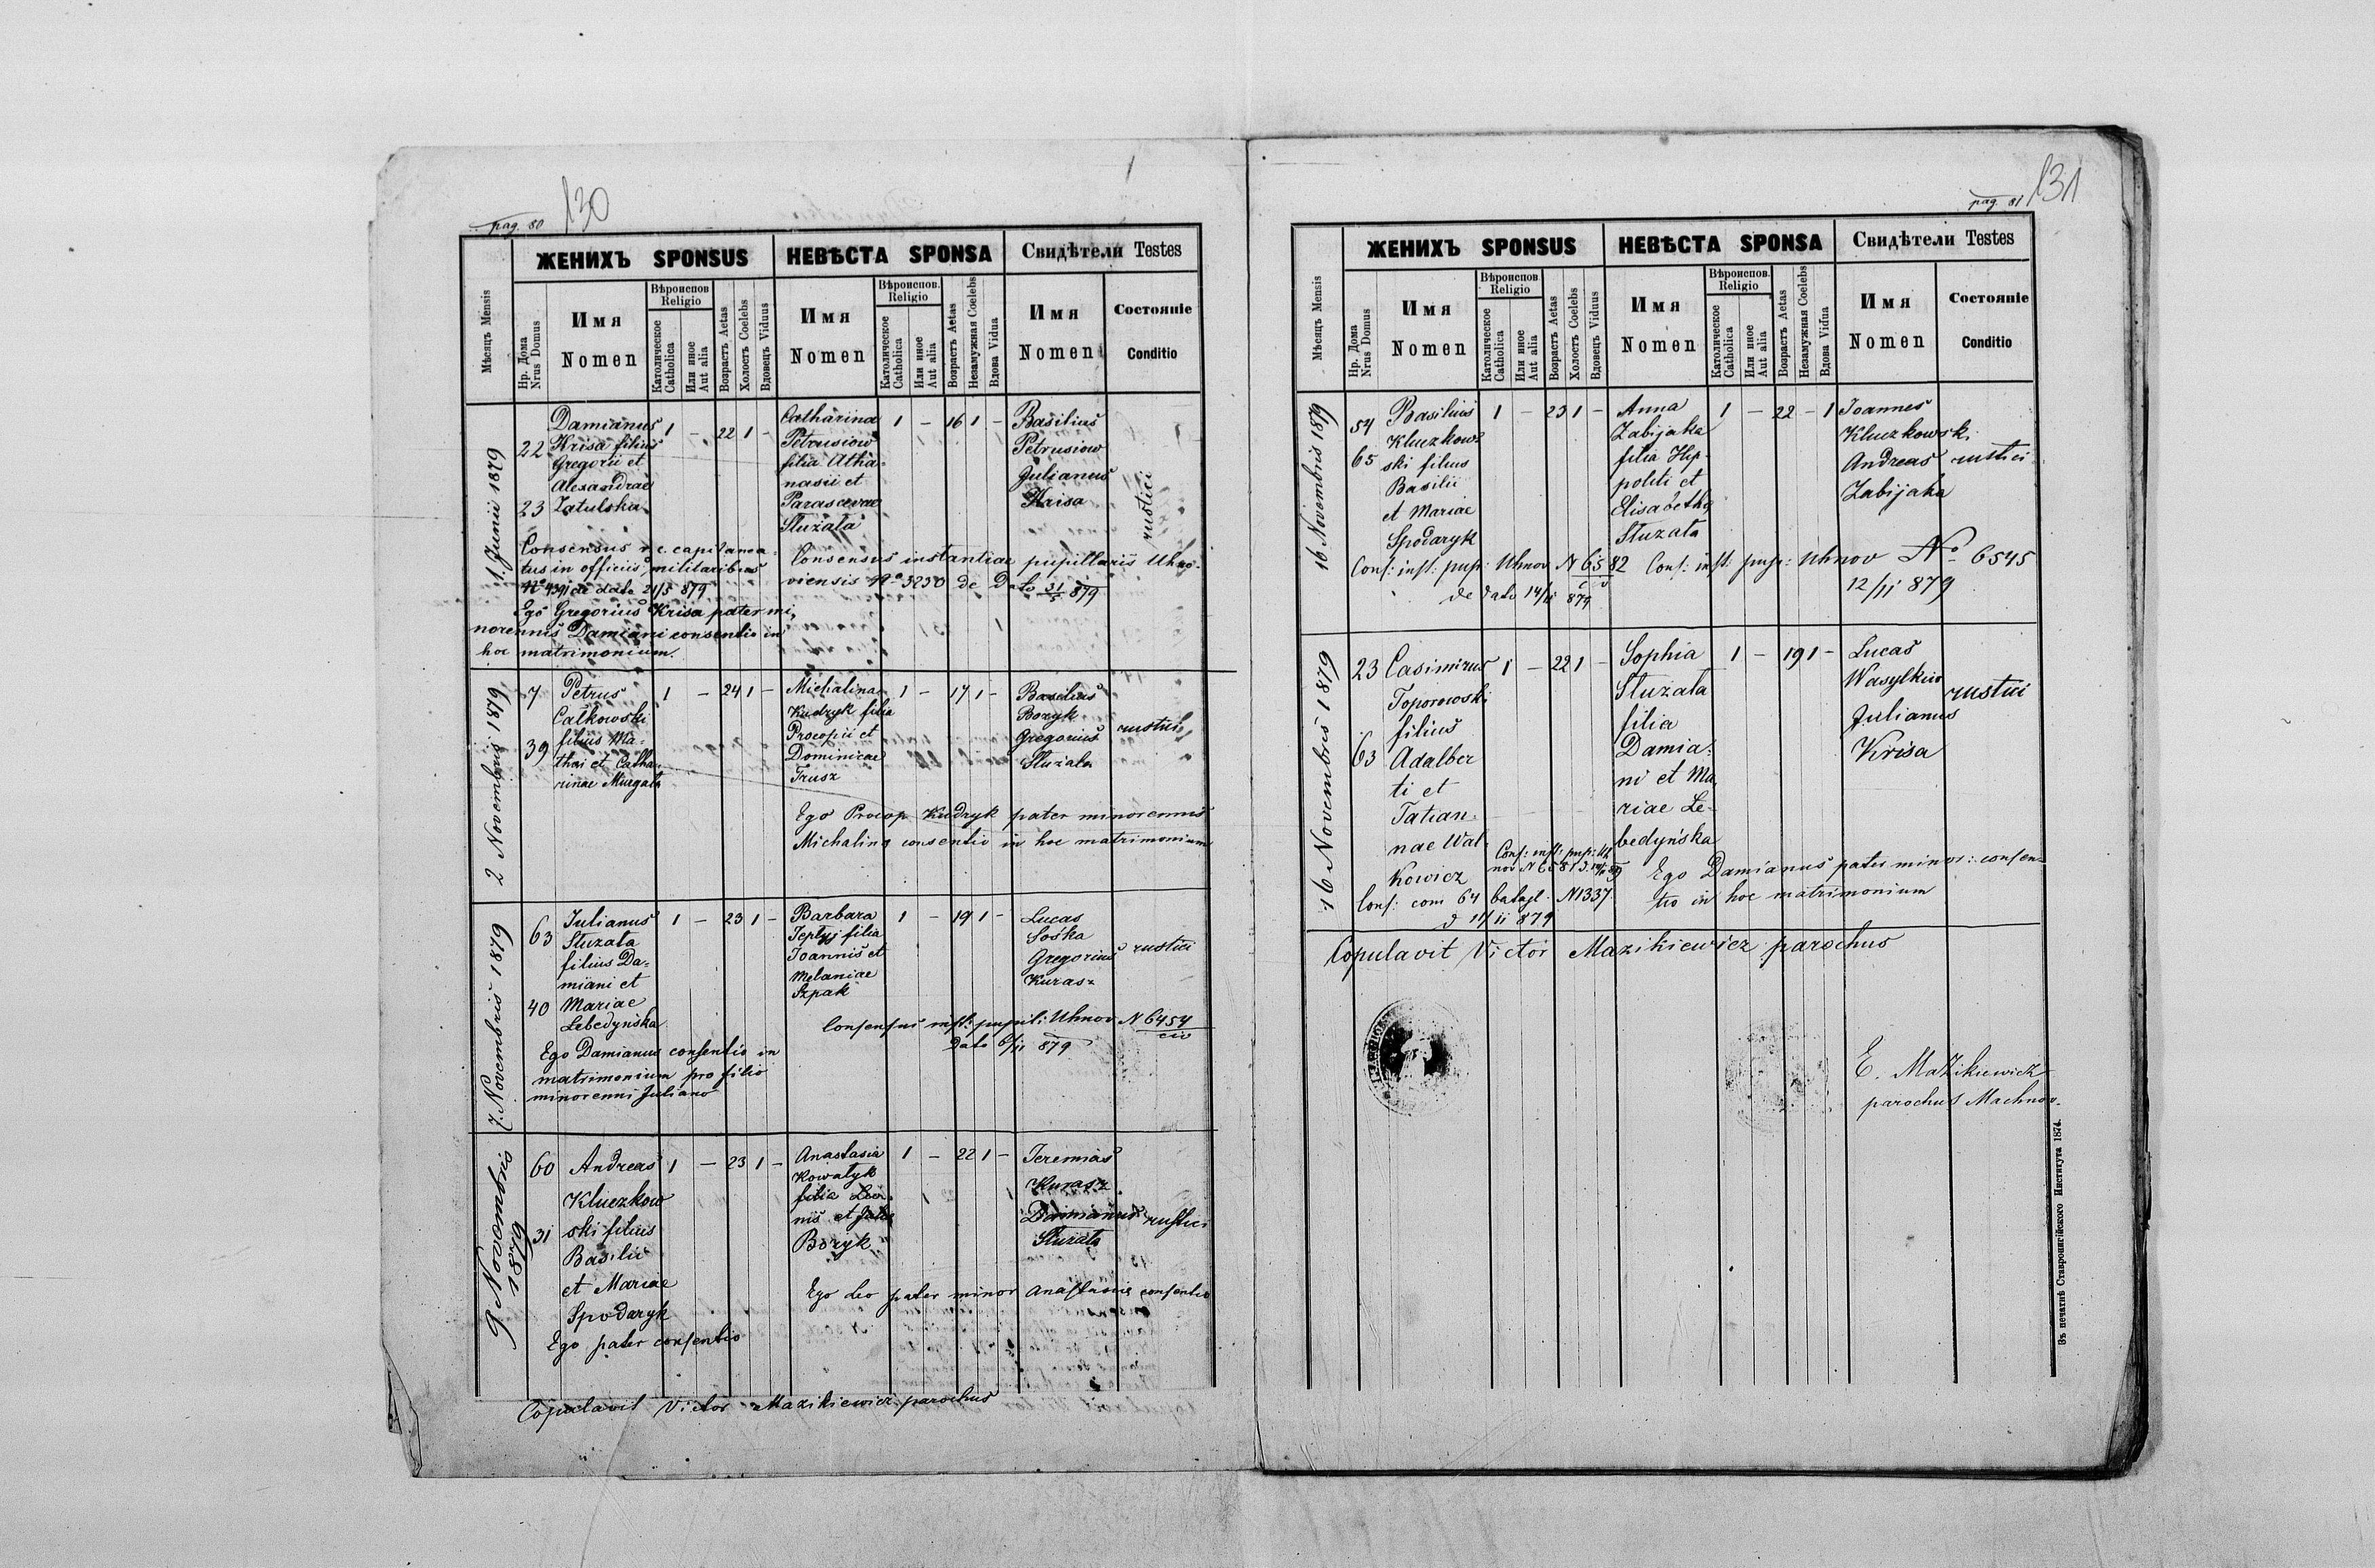 pag. 80
130
ЖЕНИХЪ SPONSUS
НЕВѢСТА SPONSA
Свидѣтели Testes
Мѣсяцъ Mensis
Нр. Дома
Nrus Domus
Имя
Nomen
Вѣроиспов
Religio
Католическое
Catholica
Или иное
Aut alia
Возрастъ Aetas
Холостъ Coelebs
Вдовецъ Viduus
Имя
Nomen
Вѣроиспов.
Religio
Католическое
Catholica
Или иное
Aut alia
Возрастъ Aetas
Незамужная Coelebs
Вдова Vidua
Имя
Nomen
Состояніе
Conditio
1. Junii 1879
22
23
Damianus
Krisa filius
Gregorii et
Alexandrae
Zatulska
1 - 22 1 -
Catharina
Petrusiow
filia Atha-
nasii et
Parascevae
Stuzata
1 - 16 1 -
Basilius
Petrusiow
Julianus
Krisa
rustici
Consensus r. c. capitanea-
tus in officiis militaribus
No 4391 de dato 21/5 879
Ego Gregorius Krisa pater mi-
norennis Damiani consentio in
hoc matrimonium.
Consensus instantiae pupillaris Uhno-
viensis No 3230 de Dato 31/5 879
2 Novembris 1879
7
39
Petrus
Calkowski
filius Ma-
thai et Catha-
rinae Miagata
1 - 24 1 -
Michalina
Kudryk filia
Procopii et
Dominicae
Trusz
1 - 17 1 -
Basilius
Bozyk
Gregorius
Stuzata
rustici
Ego Procop Kudryk pater minorennis
Michalina consentio in hoc matrimonium
7. Novembris 1879
63
40
Julianus
Stuzata
filius Da-
miani et
Mariae
Lebedynska
1 - 23 1 -
Barbara
Teptyj filia
Joannis et
Melaniae
Szpak
1 - 19 1 -
Lucas
Soska
Gregorius
Kurasz
rustici
Consensus inst: pupil: Uhnov N 6454
Dato 6/11 879
Ego Damianus consentio in
matrimonium pro filio
minorenni Juliano
9 Novembris
1879
60
31
Andreas
Kluczkow
ski filius
Basilii
et Mariae
Spodaryk
1 - 23 1 -
Anastasia
Kowatyk
filia Leo-
nis et
Bozyk
1 - 22 1 -
Jeremias
Kurasz
Damianus
Stuzata
rustici
Ego Leo pater minor Anastasiae consentio
Ego pater consentio
Copulavit Victor Mazikiewicz parochus
pag. 81
131
ЖЕНИХЪ SPONSUS
НЕВѢСТА SPONSA
Свидѣтели Testes
Мѣсяцъ Mensis
Нр. Дома
Nrus Domus
Имя
Nomen
Вѣроиспов.
Religio
Католическое
Catholica
Или иное
Aut alia
Возрастъ Aetas
Холостъ Coelebs
Вдовецъ Viduus
Имя
Nomen
Вѣроиспов.
Religio
Католическое
Catholica
Или иное
Aut alia
Возрастъ Aetas
Незамужная Coelebs
Вдова Vidua
Имя
Nomen
Состояніе
Conditio
16 Novembris 1879
54
65
Basilius
Kluczkow-
ski filius
Basilii
et Mariae
Spodaryk
1 - 23 1 -
Anna
Zabijaka
filia Hip-
politi et
Elisabetha
Stuzata
1 - 22 - 1
Joannes
Kluczkowski
Andreas
Zabijaka
rustici
Cons: inst: pup: Uhnov N 6582
de dato 14/11 879
Cons: inst: pup: Uhnov No 6545
12/11 879
16 Novembris 1879
23
63
Casimirus
Toporowski
filius
Adalber
ti et
Tatian-
nae Wal-
kowicz
1 - 22 1 -
Sophia
Stuzata
filia
Damia-
ni et Ma-
riae Le-
bedynska
1 - 19 1 -
Lucas
Wasylkiw
Julianus
Krisa
rustici
Cons: inst: pup: Uh
nov N 6581
Cons: com 64 batagl. N 1337
d 11/11 879
Ego Damianus pater minor: consen-
tio in hoc matrimonium
Copulavit Victor Mazikiewicz parochus
E. Mazikiewicz
parochus Machnov.
Зъ печатнѣ Ставропигійского Института 1874.